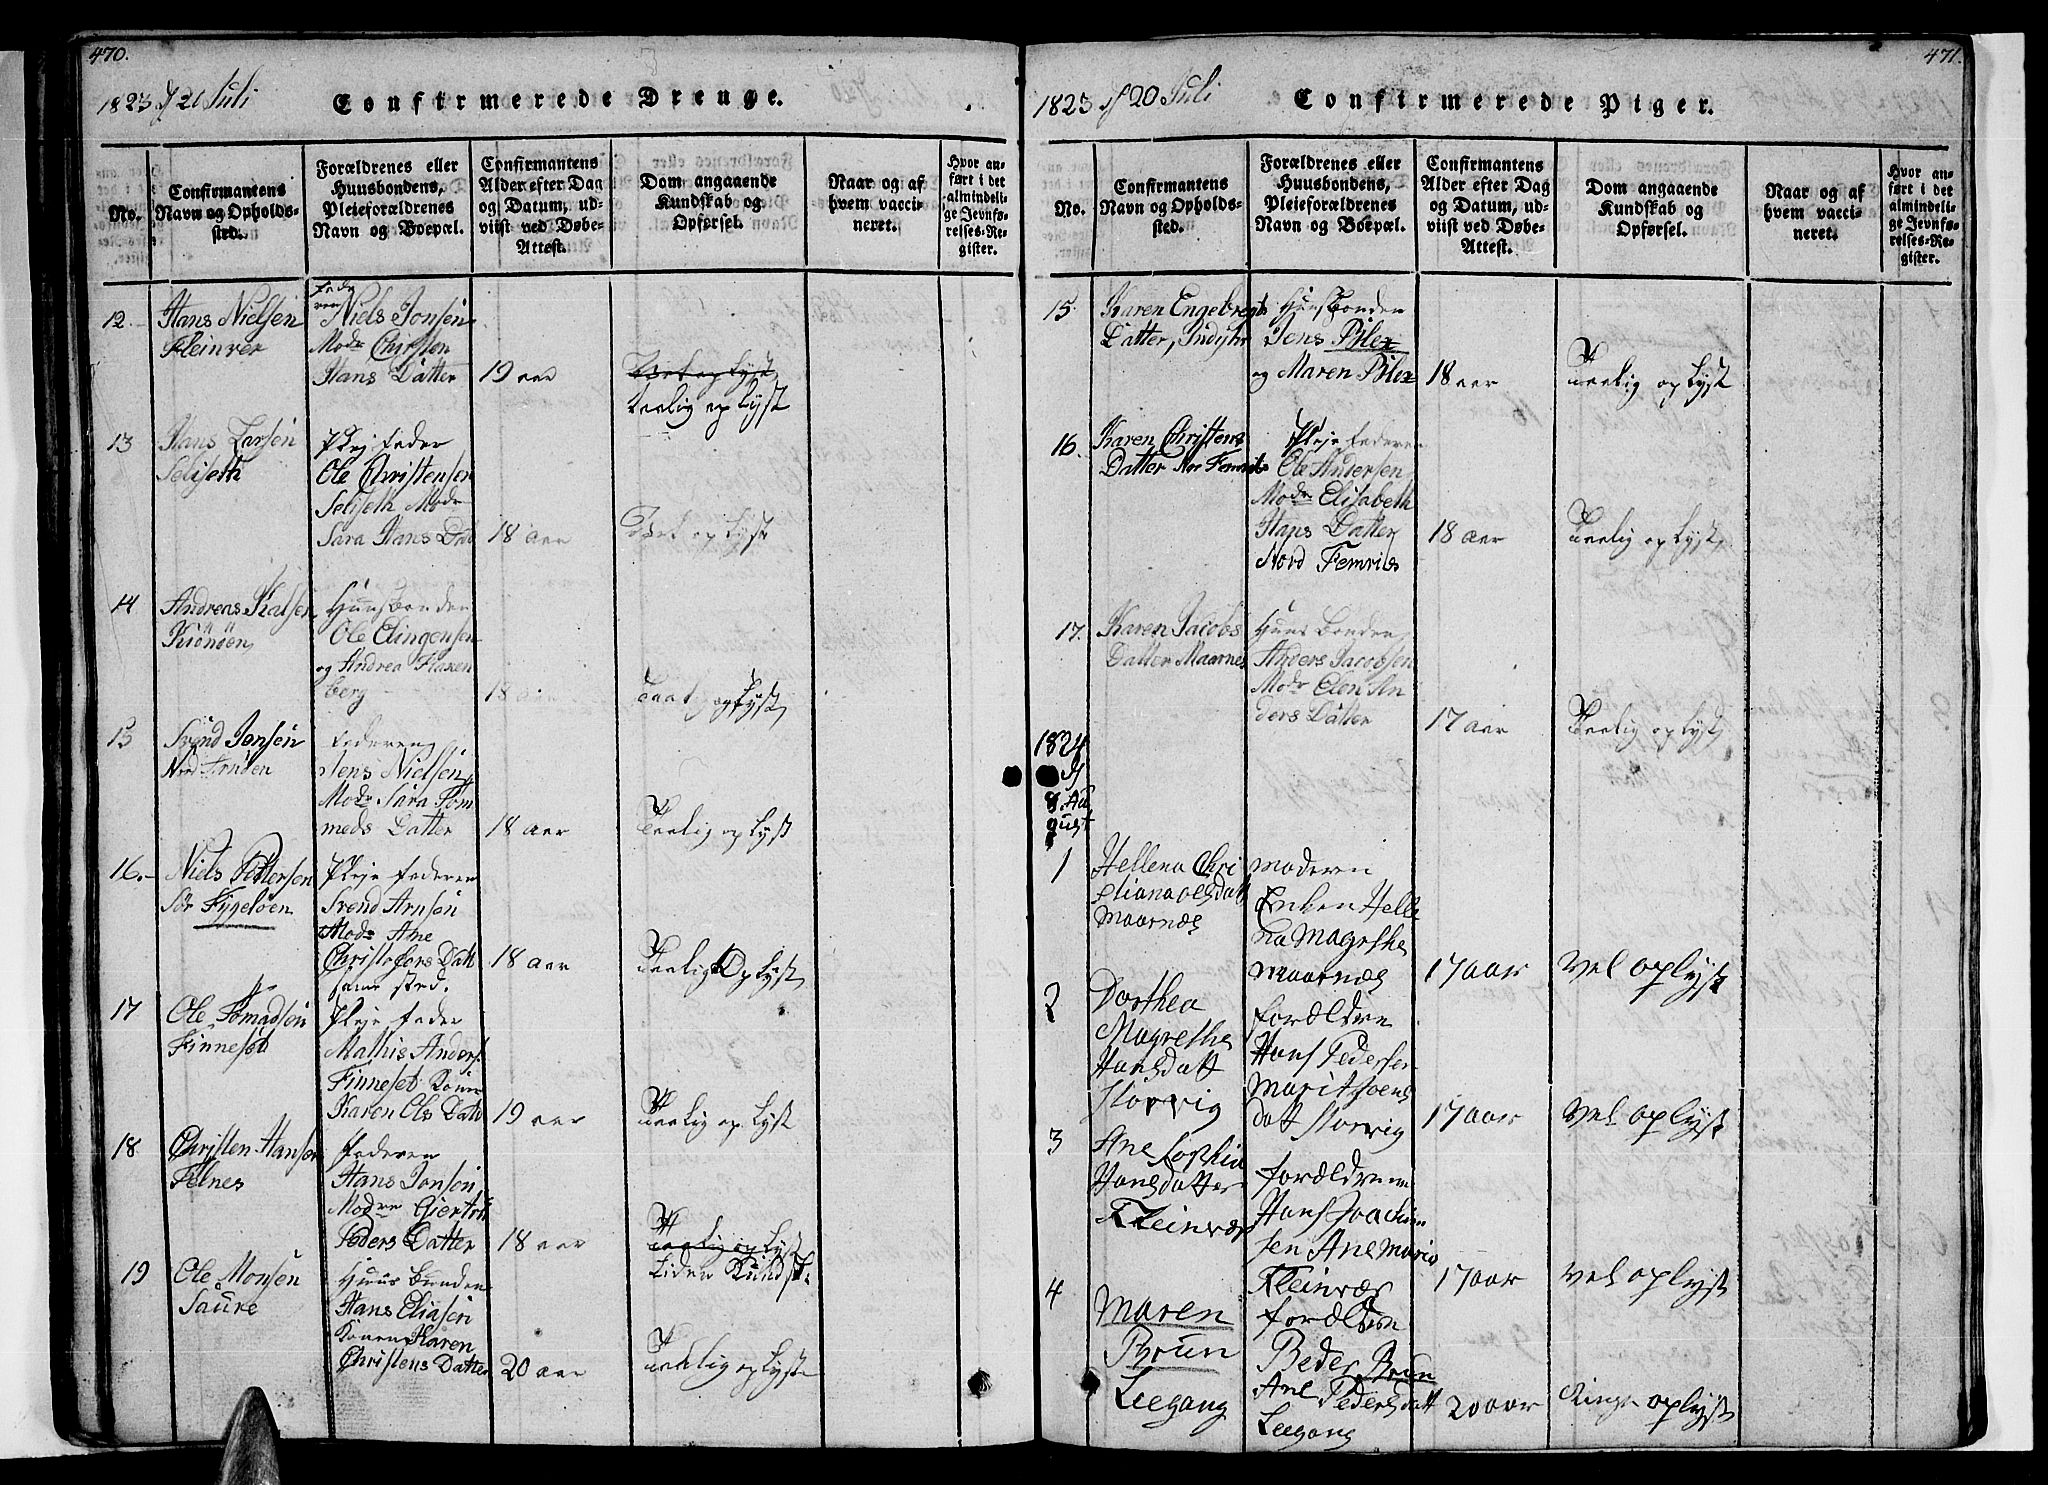 470.
1823 d 20 Juli
Confirmerede Drenge.
No.
Confirmantens
Navn og Opholds-
sted.
Forældrenes eller
Huusbondens,
Pleieforældrenes
Navn og Boepæl.
Confirmantens
Alder efter Dag
og Datum, ud-
viist ved Døbe-
Attest.
Dom angaaende
Kundskab og
Opførsel.
Naar og af
hvem vacci-
neret.
Hvor an-
ført i det
almindeli-
ge Jevnfø-
relses-Re-
gister.
12
Hans Nielsen
Fleinver
Fade
ren
Niels Jonsen
Modr Chirsten
Hans Datter
19 aar
Taalig oplyst
13
Hans Larsen
Seliseth
Plejfader
Ole Christensen
Seliseth Modr
Sara Hans Dat
18 aar
oplyst
14
Andreas
Huusbonden
Ole Elingensen
og Andrea Flaxen
berg
18 aar
oplyst
15
Svend Jonsen
Nord Arnöen
Faderen
Jens Nielsen
Modr Sara Tom
meds Datter
18 aar
Taalig oplyst
16.
Niels Pettersen
Sör Fygeløen
Pleje Faderen
Svend Arnsen
Modr Ane
Christofers Datt
samested.
18 aar
Taalig Oplyst
17
Ole Tomadsön
Finneset
Pleje Fader
Mathis Anders
Finneset Konen
Karen Ols Datt
19 aar
Taalig oplyst
18
Christen Hansen
Felnes
Faderen
Hans Jonsen
Modren Giertru
Peders Datter
18 aar
Taalig oplyst
Liden Kundsk.
19
Ole Monsen
Saure
Huus Bonden
Hans Eliasen
Konen Karen
Christens Datter
20 aar
Taalig oplyst
471.
1823 d 20 Juli
Confirmerede Piger.
No.
Confirmantens
Navn og Opholds-
sted.
Forældrenes eller
Huusbondens,
Pleieforældrenes
Navn og Boepæl.
Confirmantens
Alder efter Dag
og Datum, ud-
viist ved Døbe-
Attest.
Dom angaaende
Kundskab og
Opførsel.
Naar og af
hvem vacci-
neret.
Hvor an-
ført i det
almindeli-
ge Jevnfø-
relses-Re-
gister.
15
Karen Engebregts
Datter, Indyhr
Huusbonden
Jens Blix
og Maren Blix
18 aar
Taalig oplyst
16.
Karen Christens
Datter Nor Femris
Pleje Faderen
Ole Andersen
Modr Elisabeth
Hans Datter
Nord Femris
18 aar
Taalig oplyst
17.
Karen Jacobs
Datter Maarnes
Huus Bonden
Anders Jacobsen
Modr Elen An
ders Datter
17 aar
Taalig oplyst
1824
d
8 Au
gust
1
Hellena Chri
stiana olsdatt
Maarnæs
Moderen
Enken Helle
na Magrethe
Maarnæs
17 aar
vel oplyst
2
Dorthea
Magrethe
Hansdatt
Storvig
foræeldre
Hans Pedersen
Marit Joens
datt Storvig
17 aar
vel oplyst
3
Ane Sophia
Hansdatter
Fleinvær
forældrene
Hans Joachim
sen Ane Maria
Fleinvær
17 aar
vel oplyst
4
Maren
Brun
Leegang
forældrene
Peder Brun
Ane Pedersdatt
Leegang
20 aar
Ringe oplyst